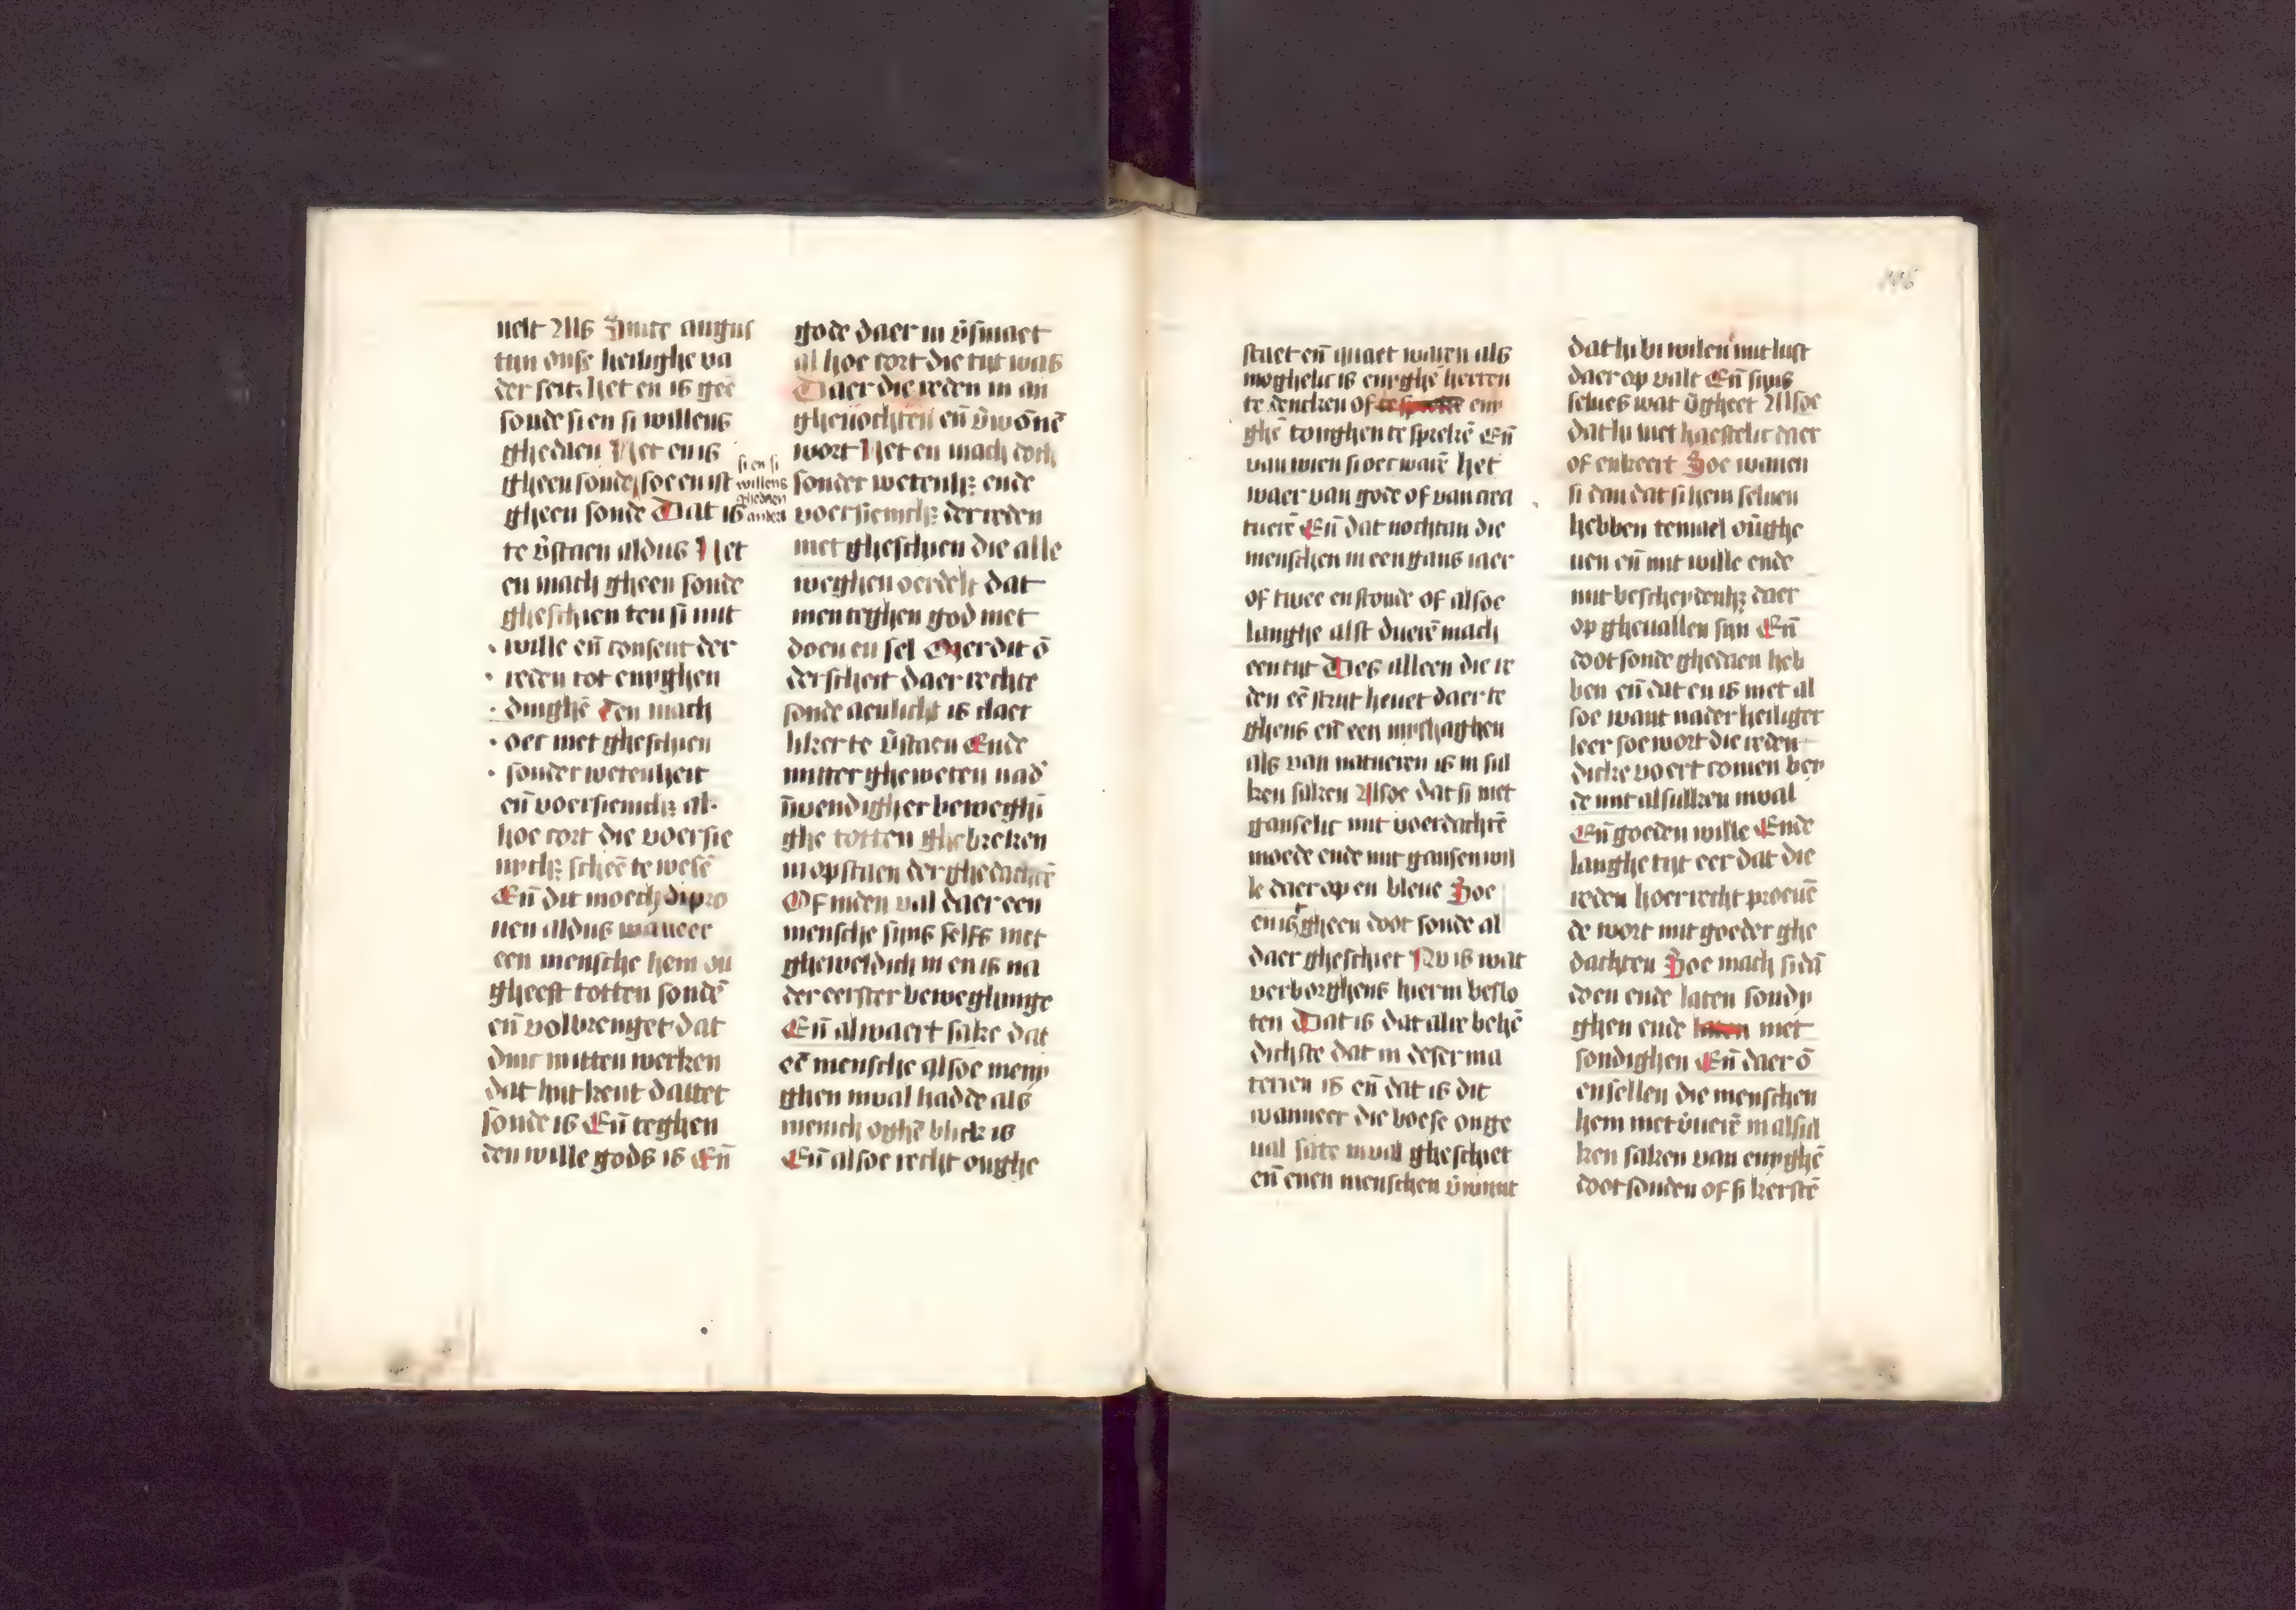 uelt Als Sinte augus
tijn onse heilighe va
der seit. Het en is gee
sonde si en si willens
ghedaen Het en is
gheen sonde soe en ist
si en si
willens
ghedaen
gheen sonde Dat is
te v̄staen aldus Het
en mach gheen sonde
gheschien ten si mit
wille eñ consent der
reden tot enyghen
dinghē Ten mach
oec niet gheschien
sonder wetenheit
eñ voersienich al
hoe cort die voersie
scheē te wesē
Eñ dit moechdi pro
uen aldus wanneer
een mensche hem ou
gheeft totten sondē
eñ volbrenget dat
dinc mitten werken
dat hi kent dattet
sonde is Eñ teghen
den wille gods is Eñ
gode daer in v̄smaet
al hoe cort die tijt was
Daer die reden in an
ghenochten eñ v̄wōnē
wort Het en mach doch
sonder wetenh ende
voersienich der reden
niet gheschien die alle
weghen oerdelt dat
men teghen god niet
doen en sel Mer dit ō
derscheit daer rechte
sonde aenlicht is claer
liker te v̄staen Ende
mitter gheweten nad
inwendigher beweghī
ghe totten ghebreken
in opstaen der ghedachtē
Of inden val daer een
mensche sijns selfs niet
gheweldich in en is na
der eerster beweghinge
Eñ al waert sake dat
eē mensche alsoe meny
ghen inval hadde als
menich oghē blick is
Eñ alsoe recht onghe
staet eñ quaet waren als
moghelic is enyghē herten
te dencken of eny
ghē tonghen te sprekē Eñ
van wien si oec warē het
waer van gode of van crea
tuerē Eñ dat nochtan die
menschen in een gans iaer
of twee en stonde of alsoe
langhe alst duerē mach
een tijt Dies alleen die re
den eē strijt heuet daer te
ghens eñ een mishaghen
als van natueren is in sul
ken saken Alsoe dat si niet
ganselic mit voerdachtē
moede ende mit gansen wil
le daer op en bleue Soe
en is gheen doot sonde al
daer gheschiet Nv is wat
verborghens hier in beslo
ten Dat is dat alre behē
dichste dat in deser ma
terien is eñ dat is dit
wanneer die boese onge
ual sate inval gheschiet
eñ enen menschen v̄wint
dat hi bi wilen mit lust
daer op valt Eñ sijns
selues wat v̄gheet Alsoe
dat hi niet haestelic daer
of enkeert Soe wanen
si dan dat si hem seluen
hebben temael ou̅ghe
uen eñ mit wille ende
mit bescheydenh daer
op gheuallen sijn Eñ
doot sonde ghedaen heb
ben eñ dat en is niet al
soe want nader heiliger
leer soe wort die reden
dicke voert comen bey
de mit alsulken inval
Eñ goeden wille Ende
langhe tijt eer dat die
reden hoer recht proeuē
de wort mit goeder ghe
dachten Soe mach si dā
doen ende laten sondy
ghen ende niet
sondighen Eñ daer ō
en sellen die menschen
hem niet v̄uerē in alsul
ken saken van enyghē
doot sonden of si kerstē